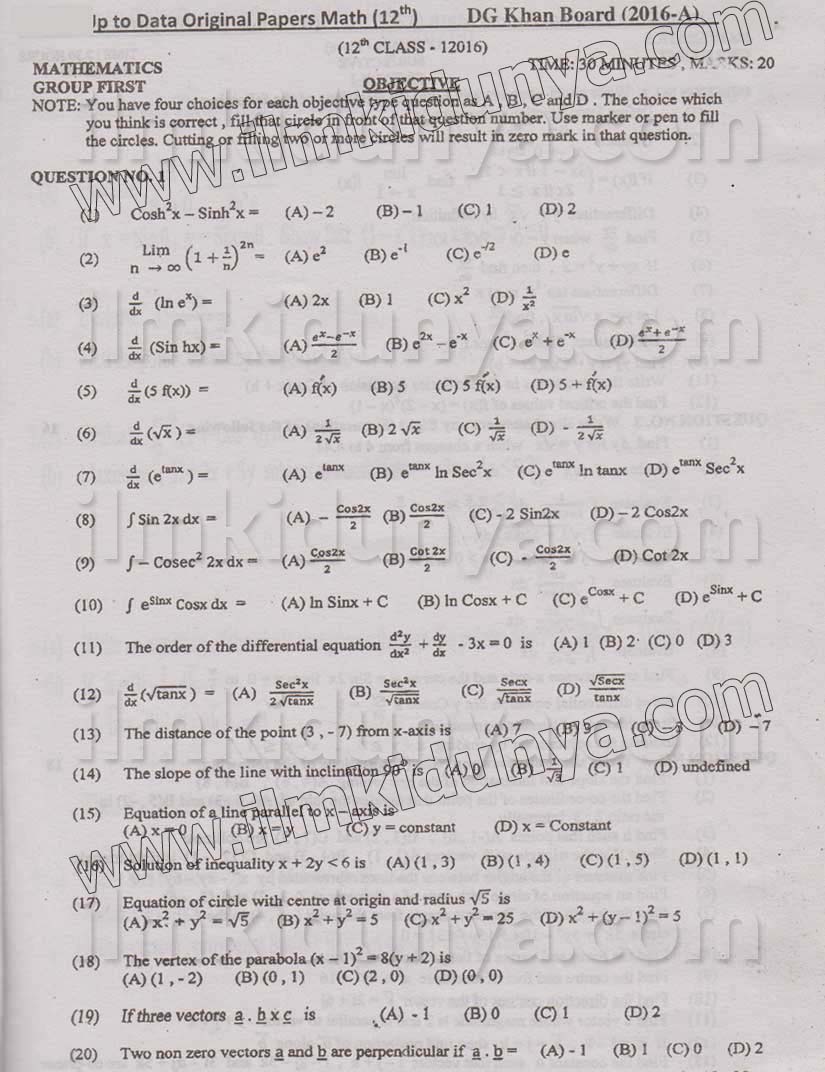 Jp to Data Original Papers Math (12th) DG Khan Board (2016-A)
(12th CLASS - 12016)
MATHEMATICS TIME: 30 MINUTES, MARKS: 20
GROUP FIRST OBJECTIVE
NOTE: You have four choices for each objective type question as A , B , C and D . The choice which
you think is correct , fill that circle in front of that question number. Use marker or pen to fill
the circles. Cutting or filling two or more circles will result in zero mark in that question.
QUESTION NO. 1
(1) Cosh²x – Sinh²x = (A) – 2 (B) – 1 (C) 1 (D) 2
(2) Lim n → ∞ (1 + 1/n)²ⁿ = (A) e² (B) e⁻¹ (C) e^-/2 (D) e
(3) d/dx (ln eˣ) = (A) 2x (B) 1 (C) x² (D) 1/x²
(4) d/dx (Sin hx) = (A) (eˣ – e⁻ˣ)/2 (B) e²ˣ – e⁻ˣ (C) eˣ + e⁻ˣ (D) (eˣ + e⁻ˣ)/2
(5) d/dx (5 f(x)) = (A) f́(x) (B) 5 (C) 5 f́(x) (D) 5 + f́(x)
(6) d/dx (√x ) = (A) 1/(2√x) (B) 2 √x (C) 1/√x (D) - 1/(2√x)
(7) d/dx (e^tanx ) = (A) e^tanx (B) e^tanx ln Sec²x (C) e^tanx ln tanx (D) e^tanx Sec²x
(8) ∫ Sin 2x dx = (A) – Cos2x/2 (B) Cos2x/2 (C) - 2 Sin2x (D) – 2 Cos2x
(9) ∫ – Cosec² 2x dx = (A) Cos2x/2 (B) Cot 2x/2 (C) - Cos2x/2 (D) Cot 2x
(10) ∫ e^Sinx Cosx dx = (A) ln Sinx + C (B) ln Cosx + C (C) e^Cosx + C (D) e^Sinx + C
(11) The order of the differential equation d²y/dx² + dy/dx - 3x = 0 is (A) 1 (B) 2 (C) 0 (D) 3
(12) d/dx (√tanx) = (A) Sec²x/(2√tanx) (B) Sec²x/√tanx (C) Secx/√tanx (D) √Secx/tanx
(13) The distance of the point (3 , - 7) from x-axis is (A) 7 (B) 3 (C) – 3 (D) – 7
(14) The slope of the line with inclination 90° is (A) 0 (B) 1/√3 (C) 1 (D) undefined
(15) Equation of a line parallel to x – axis is
(A) x = 0 (B) x = y (C) y = constant (D) x = Constant
(16) Solution of inequality x + 2y < 6 is (A) (1 , 3) (B) (1 , 4) (C) (1 , 5) (D) (1 , 1)
(17) Equation of circle with centre at origin and radius √5 is
(A) x² + y² = √5 (B) x² + y² = 5 (C) x² + y² = 25 (D) x² + (y – 1)² = 5
(18) The vertex of the parabola (x – 1)² = 8(y + 2) is
(A) (1 , - 2) (B) (0 , 1) (C) (2 , 0) (D) (0 , 0)
(19) If three vectors a . b x c is (A) - 1 (B) 0 (C) 1 (D) 2
(20) Two non zero vectors a and b are perpendicular if a . b = (A) - 1 (B) 1 (C) 0 (D) 2
www.ilmkidunya.com
www.ilmkidunya.com
ilmkidunya.com
ilmkidunya.com
ilmkidunya.com
ilmkidunya.com
ilmkidunya.com